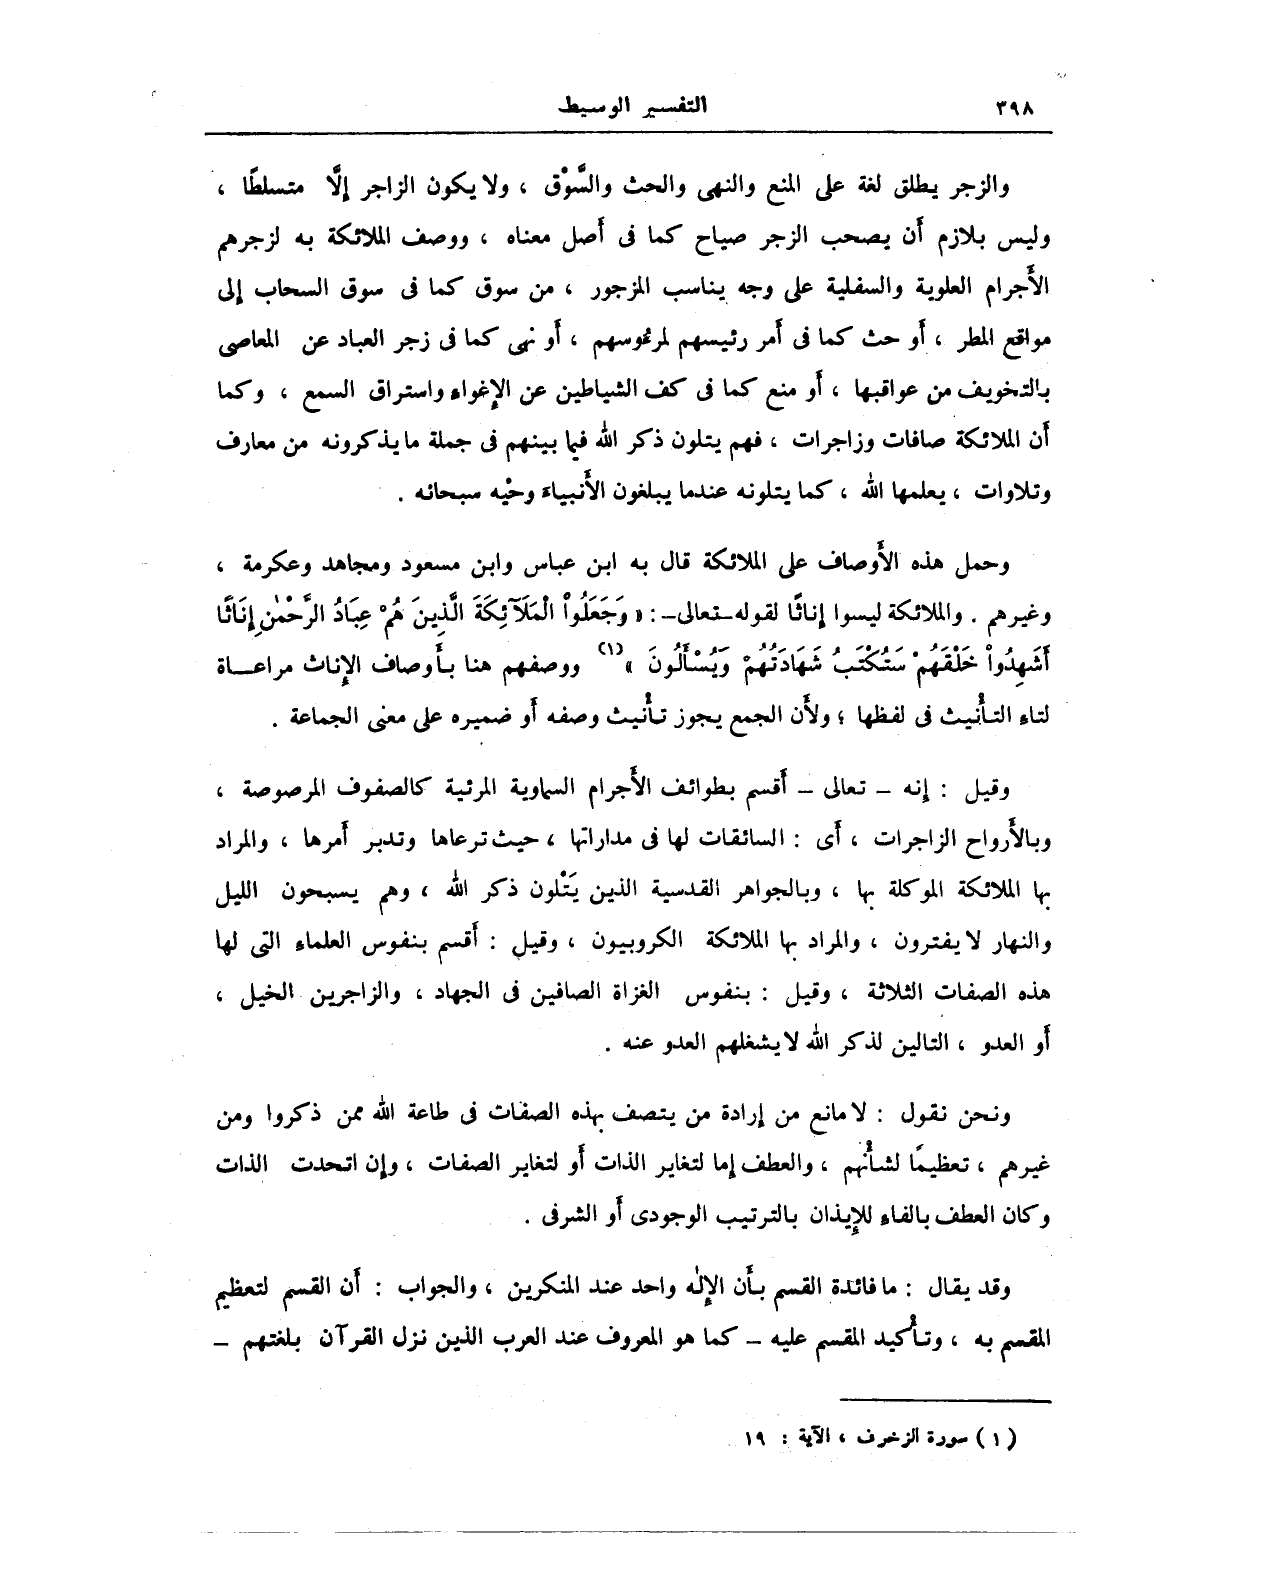 ٣٩٨
التفسير الوسيط
والزجر يطلق لغة على المنع والنهى والحث والسَّوْق ، ولا يكون الزاجر إلَّا متسلطًا ،
وليس بلازم أن يصحب الزجر صياح كما فى أصل معناه ، ووصف الملائكة به لزجرهم
الأجرام العلوية والسفلية على وجه يناسب المزجور ، من سوق كما فى سوق السحاب إلى
مواقع المطر ، أو حث كما فى أمر رئيسهم لمرءوسهم ، أو نهى كما فى زجر العباد عن المعاصى
بالتخويف من عواقبها ، أو منع كما فى كف الشياطين عن الإغواء واستراق السمع ، وكما
أن الملائكة صافات وزاجرات ، فهم يتلون ذكر الله فيما بينهم فى جملة ما يذكرونه من معارف
وتلاوات ، يعلمها الله ، كما يتلونه عندما يبلغون الأنبياء وحْيه سبحانه .
وحمل هذه الأوصاف على الملائكة قال به ابن عباس وابن مسعود ومجاهد وعكرمة ،
وغيرهم . والملائكة ليسوا إناثًا لقوله-تعالى-: « وَجَعَلُواْ الْمَلَآئِكَةَ الَّذِينَ هُمْ عِبَادُ الرَّحْمَٰنِ إِنَاثًا
أَشَهِدُواْ خَلْقَهُمْ سَتُكْتَبُ شَهَادَتُهُمْ وَيُسْأَلُونَ »(١) ووصفهم هنا بأوصاف الإناث مراعــاة
لتاء التأنيث فى لفظها ؛ ولأن الجمع يجوز تأنيث وصفه أو ضميره على معنى الجماعة .
وقيل : إنه - تعالى - أقسم بطوائف الأجرام السماوية المرئية كالصفوف المرصوصة ،
وبالأرواح الزاجرات ، أى : السائقات لها فى مداراتها ، حيث ترعاها وتدبر أمرها ، والمراد
بها الملائكة الموكلة بها ، وبالجواهر القدسية الذين يَتْلون ذكر الله ، وهم يسبحون الليل
والنهار لا يفترون ، والمراد بها الملائكة الكروبيون ، وقيل : أقسم بنفوس العلماء التى لها
هذه الصفات الثلاثة ، وقيل : بنفوس الغزاة الصافين فى الجهاد ، والزاجرين الخيل ،
أو العدو ، التالين لذكر الله لا يشغلهم العدو عنه .
ونحن نقول : لا مانع من إرادة من يتصف بهذه الصفات فى طاعة الله ممن ذكروا ومن
غيرهم ، تعظيمًا لشأنهم ، والعطف إما لتغاير الذات أو لتغاير الصفات ، وإن اتحدت الذات
وكان العطف بالفاء للإيذان بالترتيب الوجودى أو الشرفى .
وقد يقال : ما فائدة القسم بأن الإلٰه واحد عند المنكرين ، والجواب : أن القسم لتعظيم
المقسم به ، وتأكيد المقسم عليه - كما هو المعروف عند العرب الذين نزل القرآن بلغتهم -
(١) سورة الزخرف ، الآية : ١٩